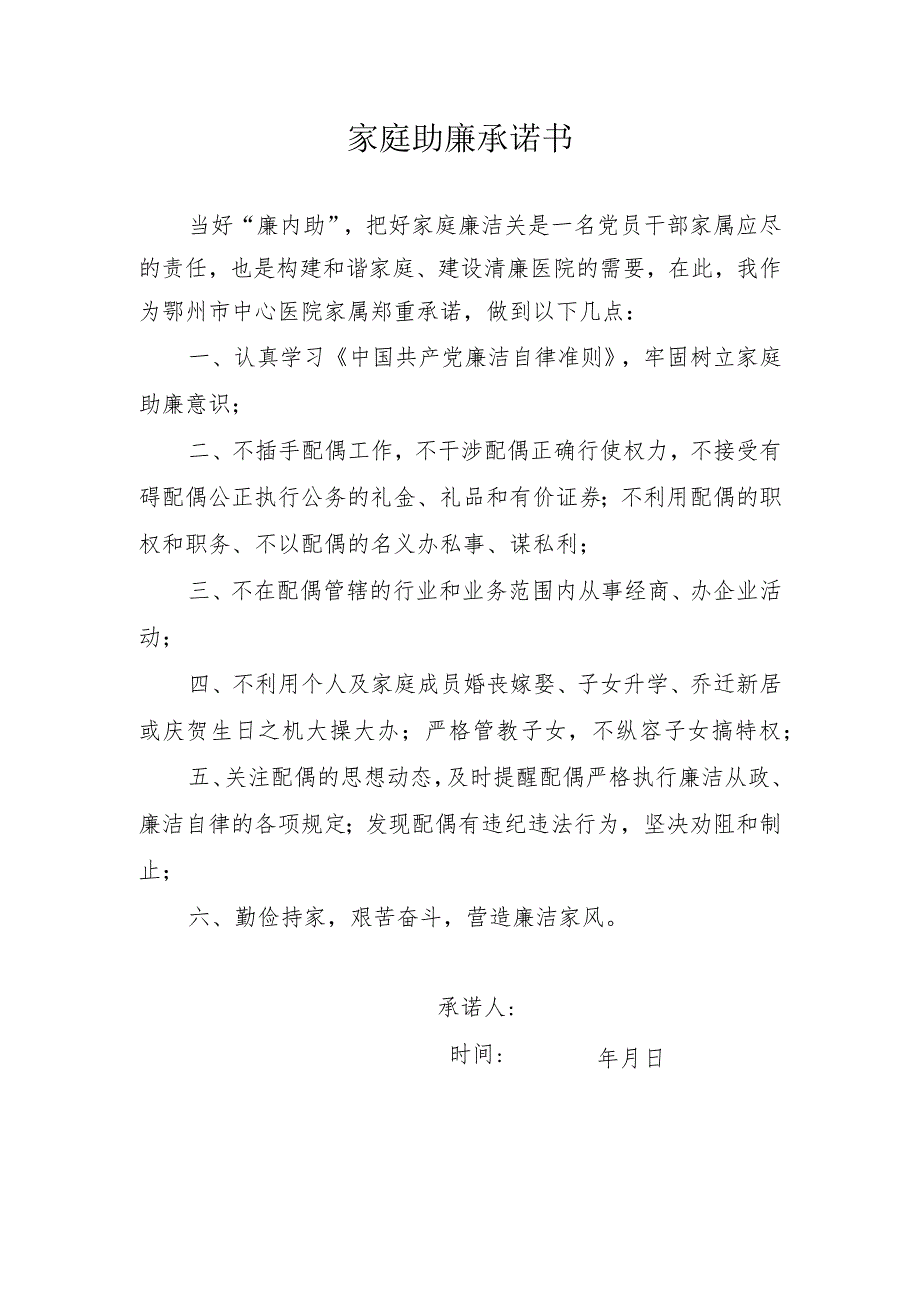 家庭助廉承诺书
当好“廉内助”，把好家庭廉洁关是一名党员干部家属应尽
的责任，也是构建和谐家庭、建设清廉医院的需要，在此，我作
为鄂州市中心医院家属郑重承诺，做到以下几点：
一、认真学习《中国共产党廉洁自律准则》，牢固树立家庭
助廉意识；
二、不插手配偶工作，不干涉配偶正确行使权力，不接受有
碍配偶公正执行公务的礼金、礼品和有价证券；不利用配偶的职
权和职务、不以配偶的名义办私事、谋私利；
三、不在配偶管辖的行业和业务范围内从事经商、办企业活
动；
四、不利用个人及家庭成员婚丧嫁娶、子女升学、乔迁新居
或庆贺生日之机大操大办；严格管教子女，不纵容子女搞特权；
五、关注配偶的思想动态，及时提醒配偶严格执行廉洁从政、
廉洁自律的各项规定；发现配偶有违纪违法行为，坚决劝阻和制
止；
六、勤俭持家，艰苦奋斗，营造廉洁家风。
承诺人：
时间： 年月日